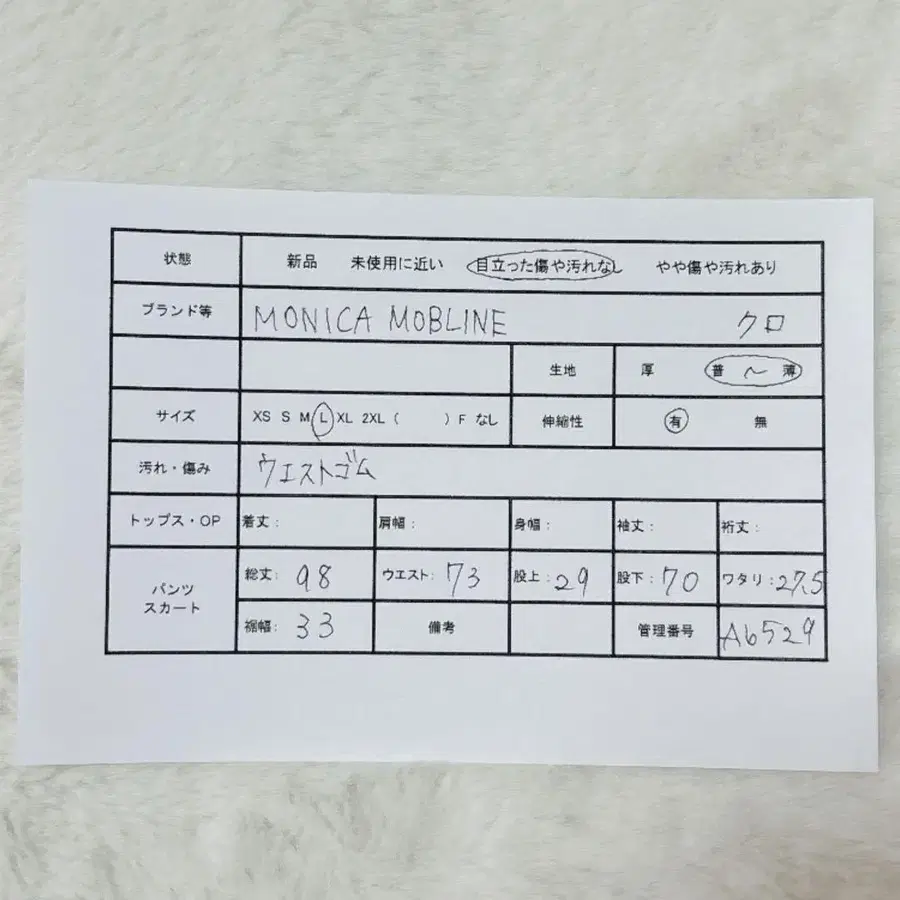 状態 新品 未使用に近い 目立った傷や汚れなし やや傷や汚れあり
ブランド等 MONICA MOBLINE クロ
生地 厚 普 〜 薄
サイズ XS S M L XL 2XL ( ) F なし 伸縮性 有 無
汚れ・傷み ウエストゴム
トップス・OP 着丈: 肩幅: 身幅: 袖丈: 裄丈:
パンツ スカート 総丈: 98 ウエスト: 73 股上: 29 股下: 70 ワタリ: 27.5
裾幅: 33 備考 管理番号 A6529